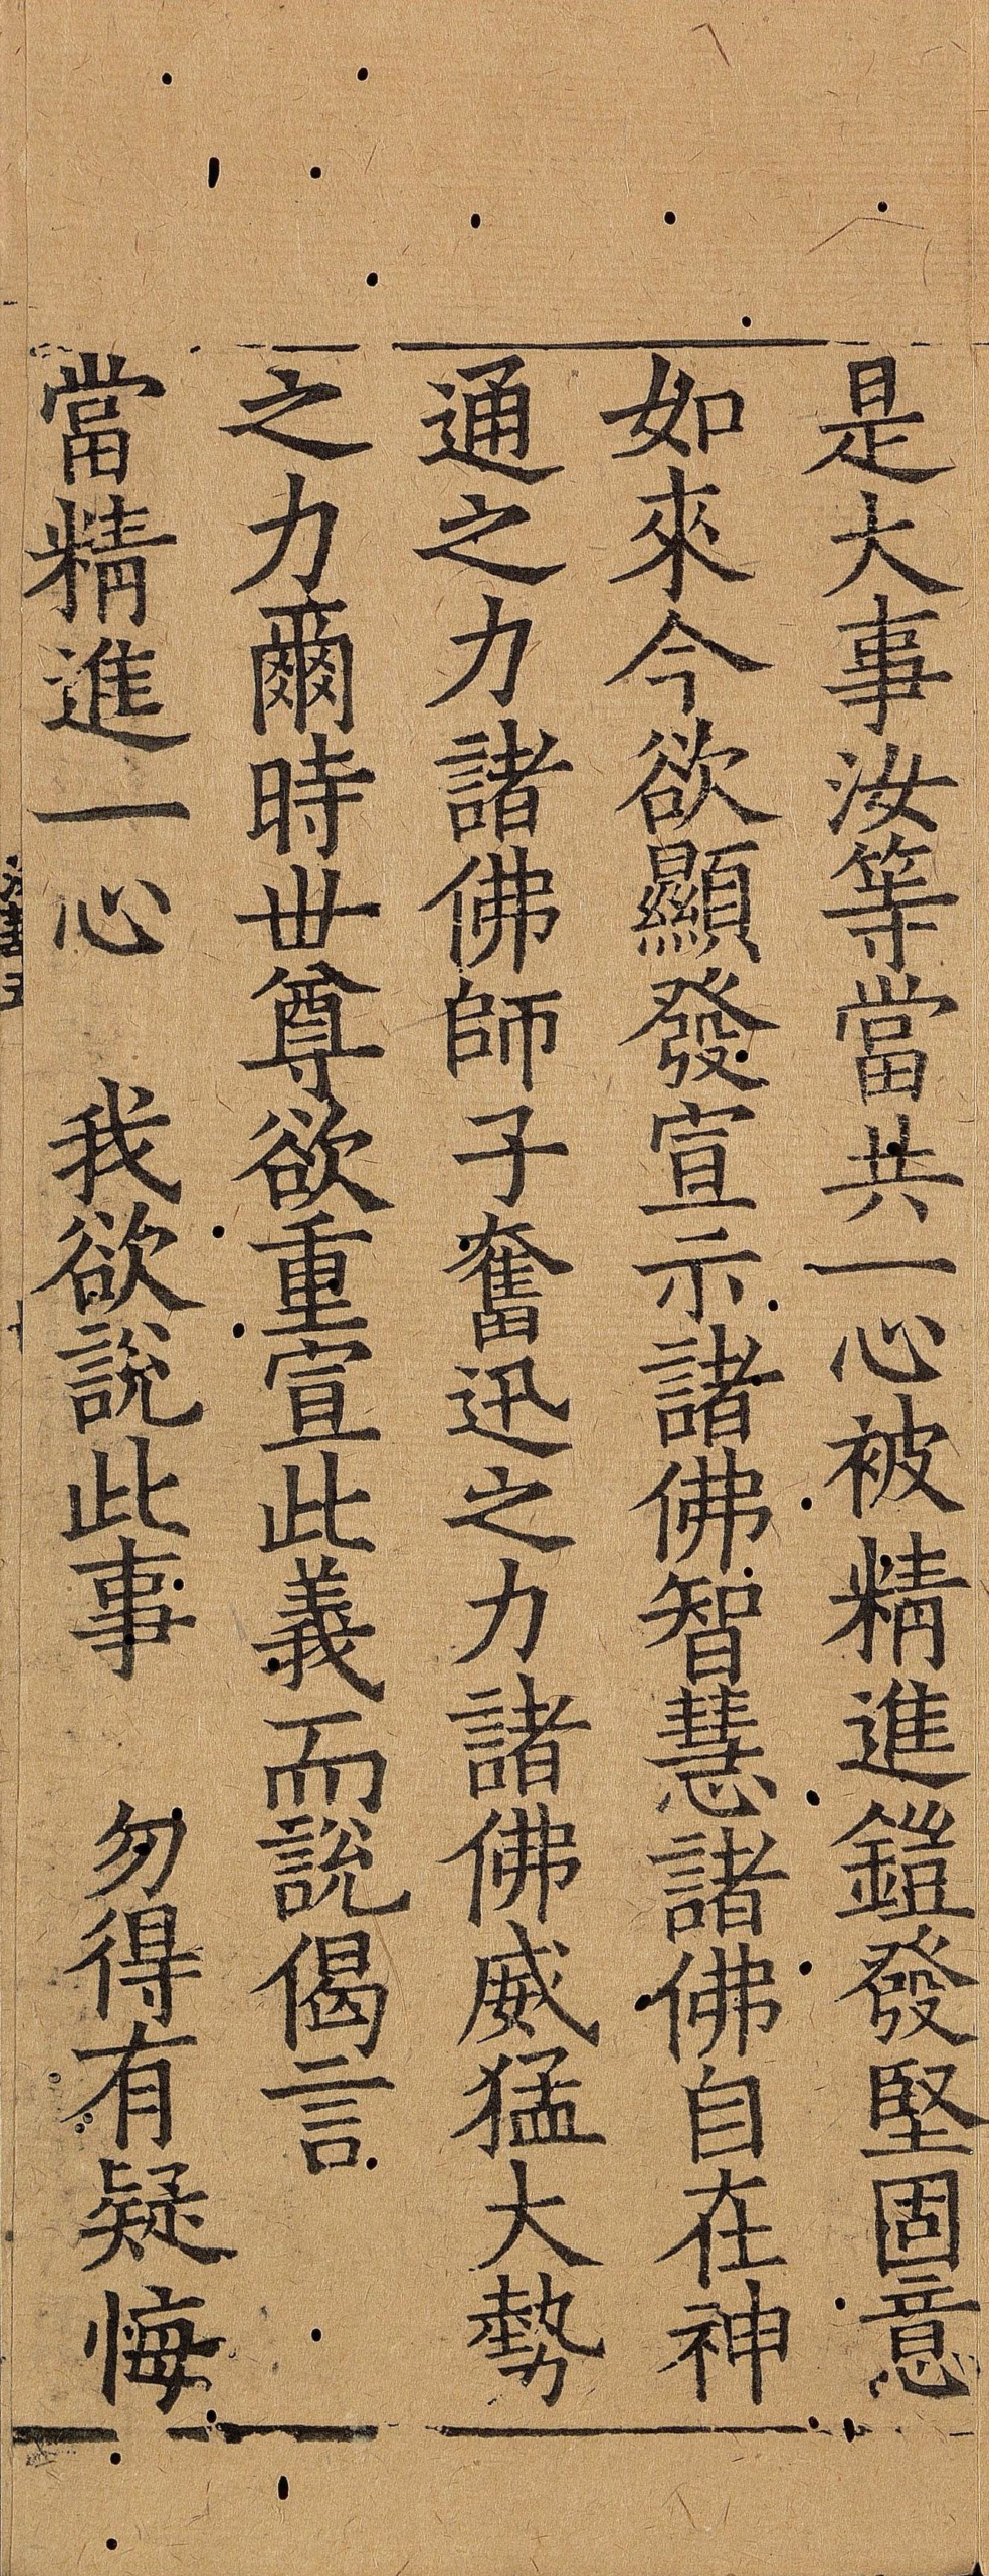 是大事汝等當共一心被精進鎧發堅固意
如來今欲顯發宣示諸佛智慧諸佛自在神
通之力諸佛師子奮迅之力諸佛威猛大勢
之力爾時世尊欲重宣此義而說偈言
當精進一心　我欲說此事　勿得有疑悔